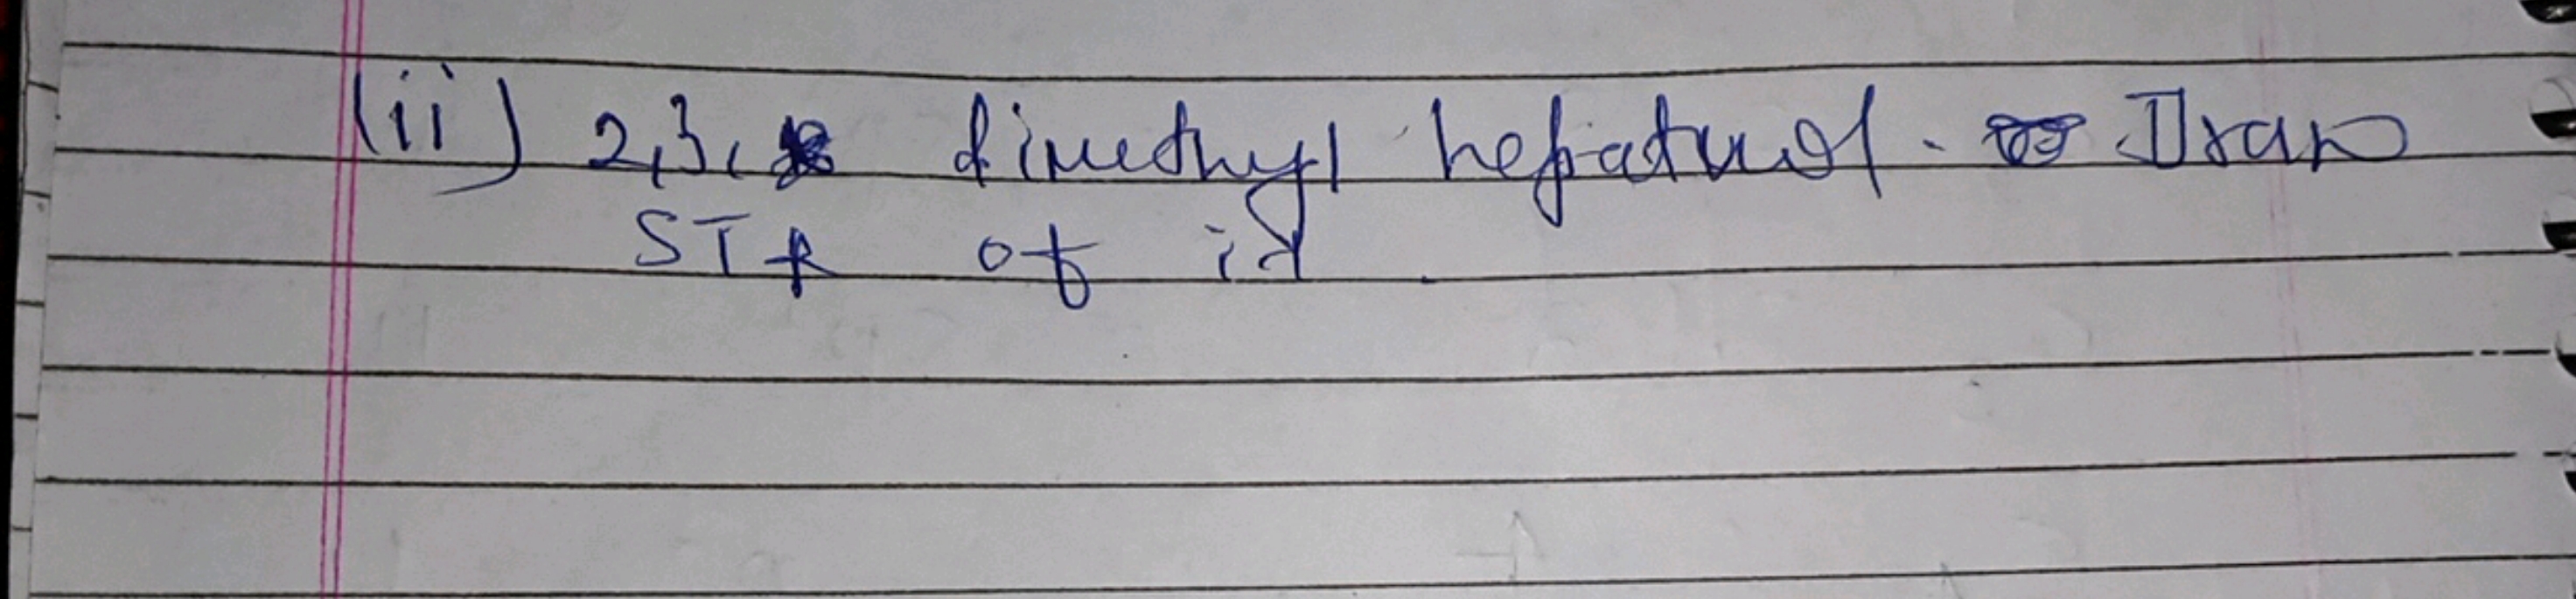 (ii) 2,3, dimethyl hepatnol. Draw
STR of it.